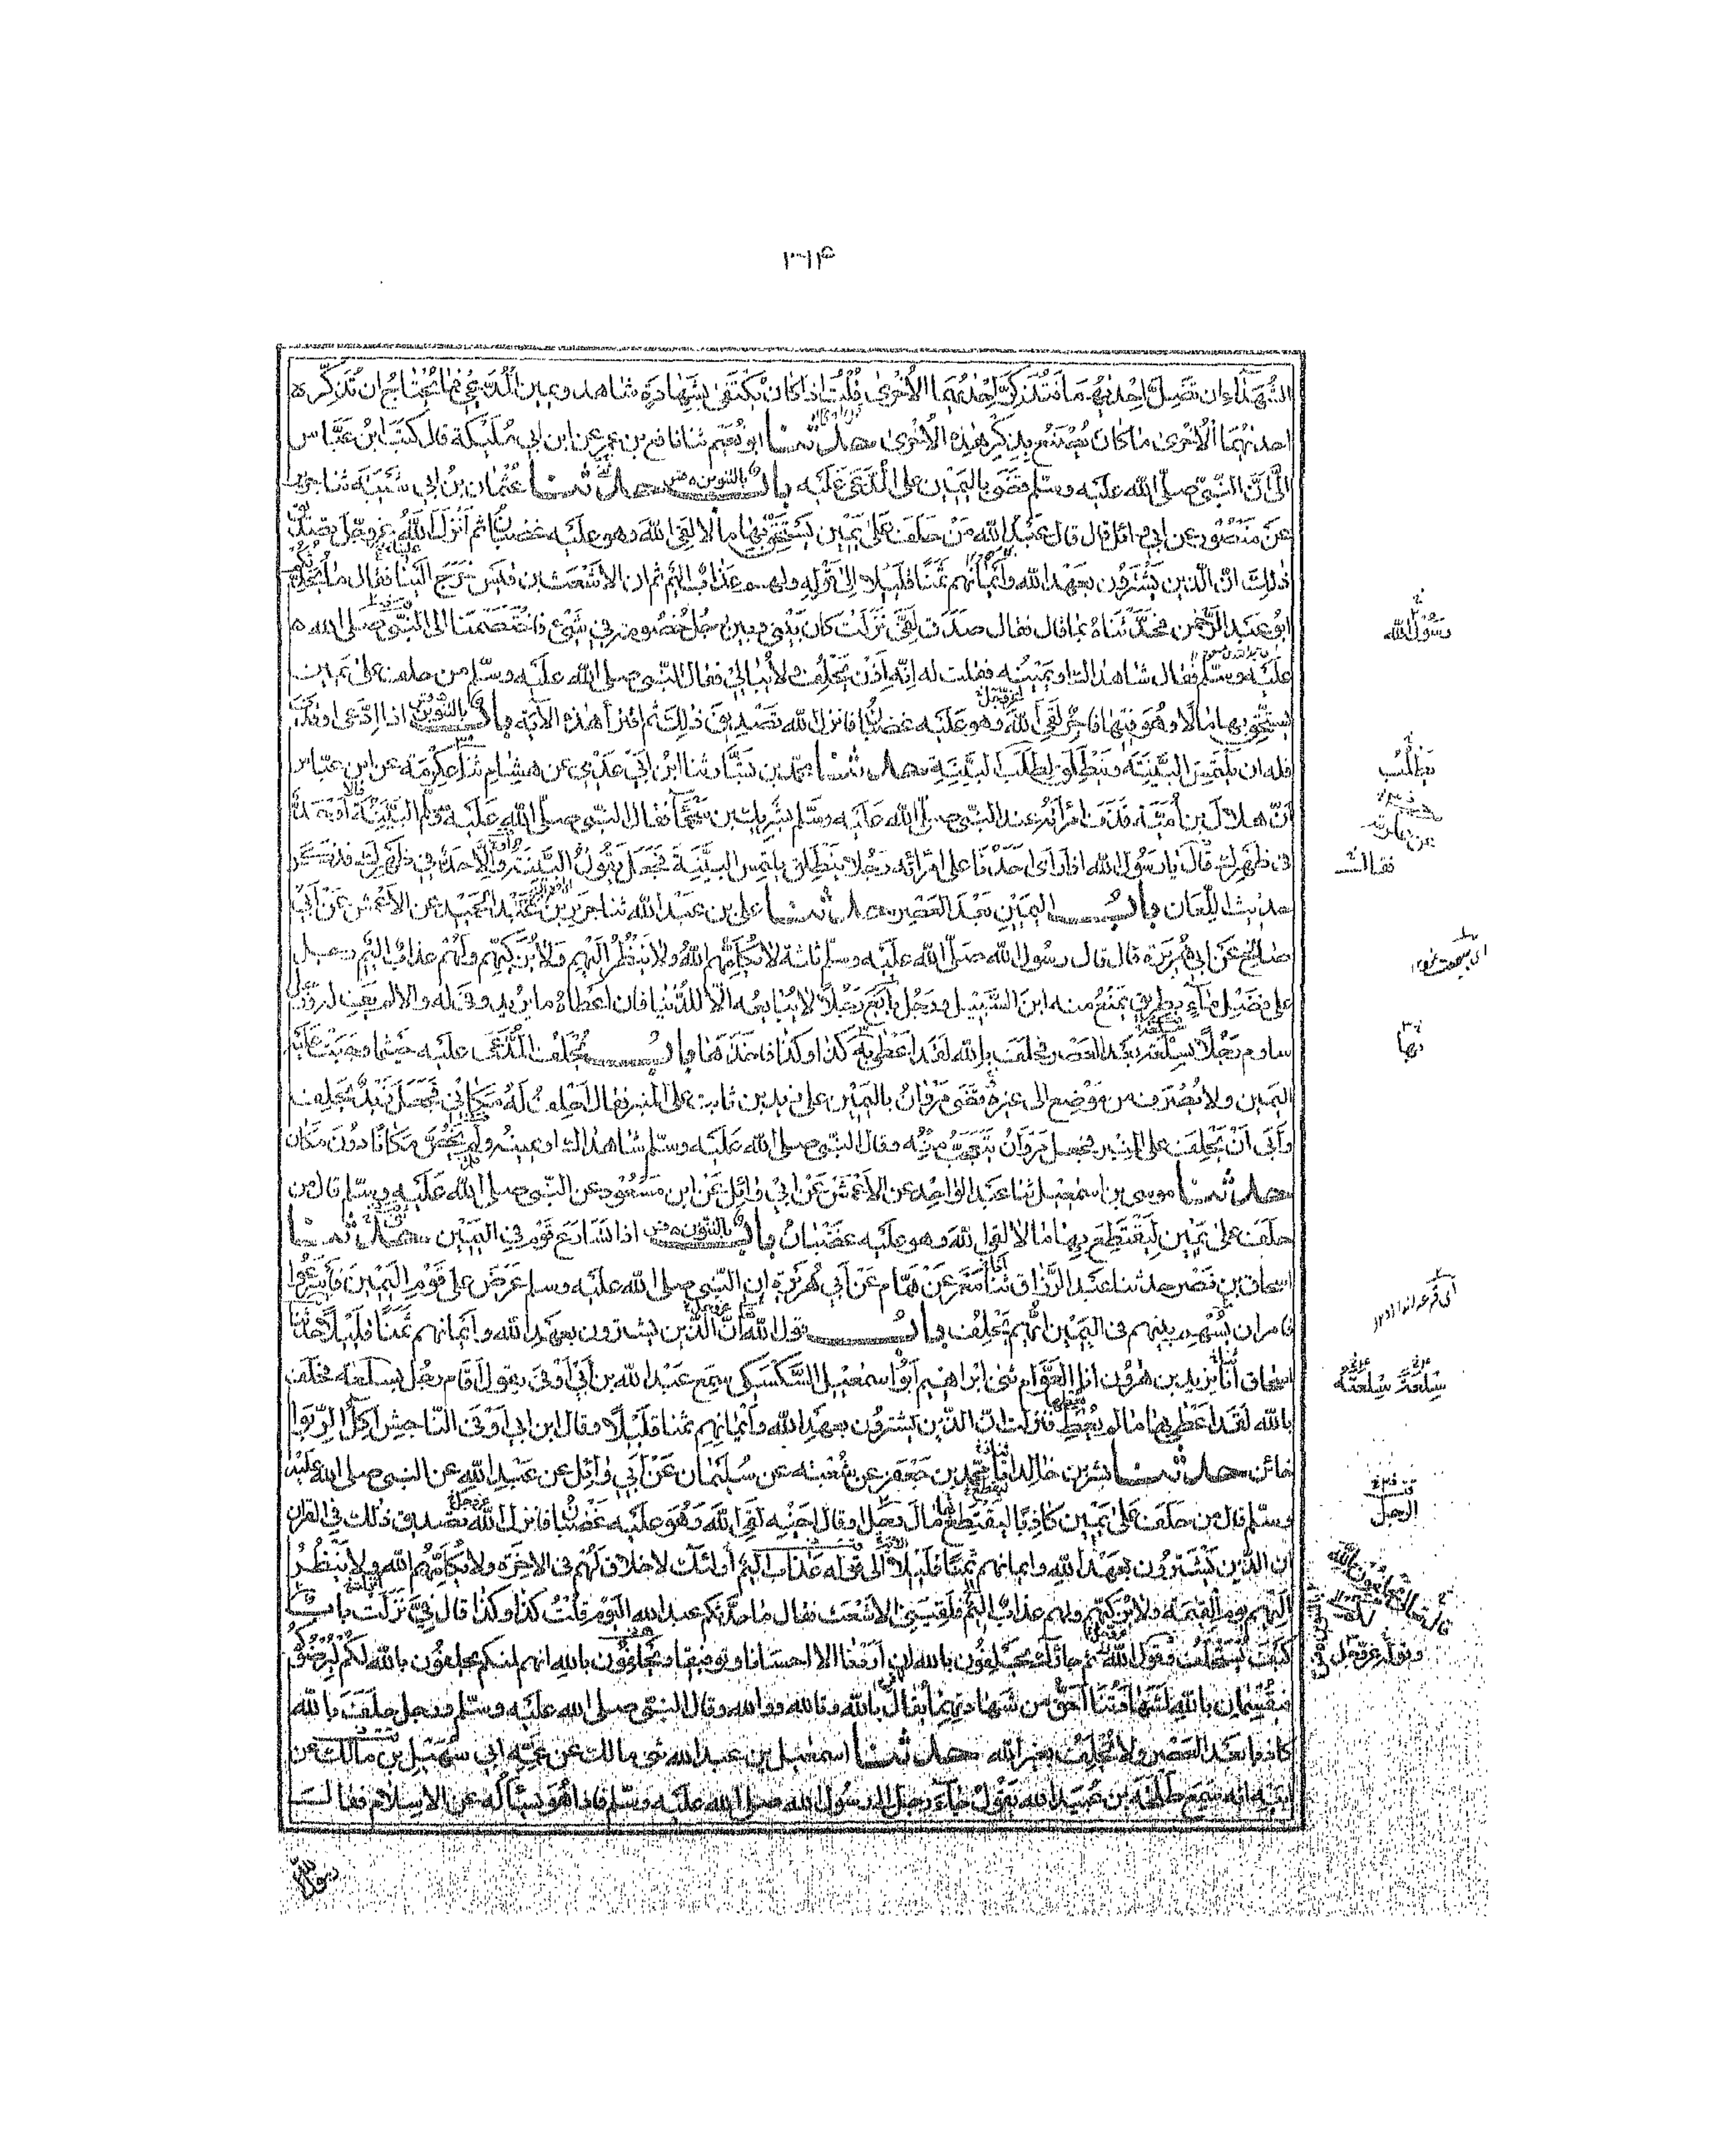 ٣٦٤
الشهداء ان تضل احدٰىهما فتذكر احدٰىهما الاخرىٰ قلت اذا كان يكتفى بشهادة شاهد ويمين المدعي فما تحتاج ان تذكر
احدٰىهما الاخرىٰ ما كان يصنع بذكر هذه الاخرىٰ حدثنا ابو نعيم ثنا نافع بن عمر عن ابن ابي مليكة قال كتب ابن عباس
الىّ ان النبي صلى الله عليه وسلم قضى باليمين على المدعى عليه باب بالتنوين حدثنا عثمان بن ابي شيبة ثنا جرير
عن منصور عن ابي وائل قال قال عبد الله من حلف على يمين يستحق بها مالا لقي الله وهو عليه غضبان ثم انزل الله عزوجل تصديق
ذٰلك ان الذين يشترون بعهد الله وايمانهم ثمنا قليلا الى قوله ولهم عذاب اليم ثم ان الاشعث بن قيس خرج الينا فقال ما يحدثكم
ابو عبد الرحمن فحدثناه بما قال فقال صدق لفيّ نزلت كان بيني وبين رجل خصومة في شئ فاختصمنا الى النبي صلى الله
عليه وسلم فقال شاهداك او يمينه فقلت له انه اذن يحلف ولا يبالي فقال النبي صلى الله عليه وسلم من حلف على يمين
يستحق بها مالا وهو فيها فاجر لقي الله وهو عليه غضبان فانزل الله تصديق ذٰلك ثم اقترأ هذه الاية باب بالتنوين اذا ادعى او قذف
فله ان يلتمس البينة وينطلق لطلب البينة حدثنا محمد بن بشار ثنا ابن ابي عدي عن هشام ثنا عكرمة عن ابن عباس
ان هلال بن امية قذف امرأته عند النبي صلى الله عليه وسلم بشريك بن سحماء فقال النبي صلى الله عليه وسلم البينة او حد
في ظهرك قال يا رسول الله اذا رأى احدنا على امرأته رجلا ينطلق يلتمس البينة فجعل يقول البينة والا حد في ظهرك فذكر
حديث اللعان باب اليمين بعد العصر حدثنا علي بن عبد الله ثنا جرير بن عبد الحميد عن الاعمش عن ابي
صالح عن ابي هريرة قال قال رسول الله صلى الله عليه وسلم ثلثة لا يكلمهم الله ولا ينظر اليهم ولا يزكيهم ولهم عذاب اليم رجل
على فضل ماء بطريق يمنع منه ابن السبيل ورجل بايع رجلا لا يبايعه الا للدنيا فان اعطاه ما يريد وفى له والا لم يف له ورجل
ساوم رجلا بسلعة بعد العصر فحلف بالله لقد اعطي به كذا وكذا فاخذها باب يحلف المدعى عليه حيثما وجبت عليه
اليمين ولا يصرف من موضع الى غيره قضى مروان باليمين على زيد بن ثابت على المنبر فقال احلف له مكاني فجعل زيد يحلف
وأبى ان يحلف على المنبر فجعل مروان يتعجب منه وقال النبي صلى الله عليه وسلم شاهداك او يمينه ولم يخص مكانا دون مكان
حدثنا موسى بن اسمٰعيل ثنا عبد الواحد عن الاعمش عن ابي وائل عن ابن مسعود عن النبي صلى الله عليه وسلم قال من
حلف على يمين ليقتطع بها مالا لقي الله وهو عليه غضبان باب بالتنوين اذا تسارع قوم في اليمين حدثنا
اسحاق بن نصر حدثنا عبد الرزاق ثنا معمر عن همام عن ابي هريرة ان النبي صلى الله عليه وسلم عرض على قوم اليمين فاسرعوا
فامر ان يسهم بينهم في اليمين ايهم يحلف باب قول الله ان الذين يشترون بعهد الله وايمانهم ثمنا قليلا حدثنا
اسحاق انا يزيد بن هٰرون انا العوام ثنى ابراهيم ابو اسمٰعيل السكسكي سمع عبد الله بن ابي اوفى يقول اقام رجل سلعته فحلف
بالله لقد اعطي بها ما لم يعط فنزلت ان الذين يشترون بعهد الله وايمانهم ثمنا قليلا وقال ابن ابي اوفى الناجش اٰكل الربوا
خائن حدثنا بشر بن خالد انا محمد بن جعفر عن شعبة عن سليمان عن ابي وائل عن عبد الله عن النبي صلى الله عليه
وسلم قال من حلف على يمين كاذبا ليقتطع مال رجل او قال اخيه لقي الله وهو عليه غضبان فانزل الله تصديق ذلك في القرآن
ان الذين يشترون بعهد الله وايمانهم ثمنا قليلا الى قوله عذاب اليم أولئك لا خلاق لهم في الاخرة ولا يكلمهم الله ولا ينظر
اليهم يوم القيٰمة ولا يزكيهم ولهم عذاب اليم فلقيني الاشعث فقال ما حدثكم عبد الله اليوم قلت كذا وكذا قال فيّ نزلت باب
كيف يستحلف وقول الله ثم جاؤك يحلفون بالله ان اردنا الا احسانا وتوفيقا ويحلفون بالله انهم لمنكم يحلفون بالله لكم ليرضوكم
فيقسمان بالله لشهادتنا احق من شهادتهما يقال بالله وتالله ووالله وقال النبي صلى الله عليه وسلم ورجل حلف بالله
كاذبا بعد العصر ولا يحلف بغير الله حدثنا اسمٰعيل بن عبد الله ثنى مالك عن عمه ابي سهيل بن مالك عن
ابيه انه سمع طلحة بن عبيد الله يقول جاء رجل الى رسول الله صلى الله عليه وسلم فاذا هو يسأله عن الاسلام فقال
رسول الله
رسول الله
بطلب
فقال
بها
سلعة سلعته
الرجل
وقول الله عزوجل